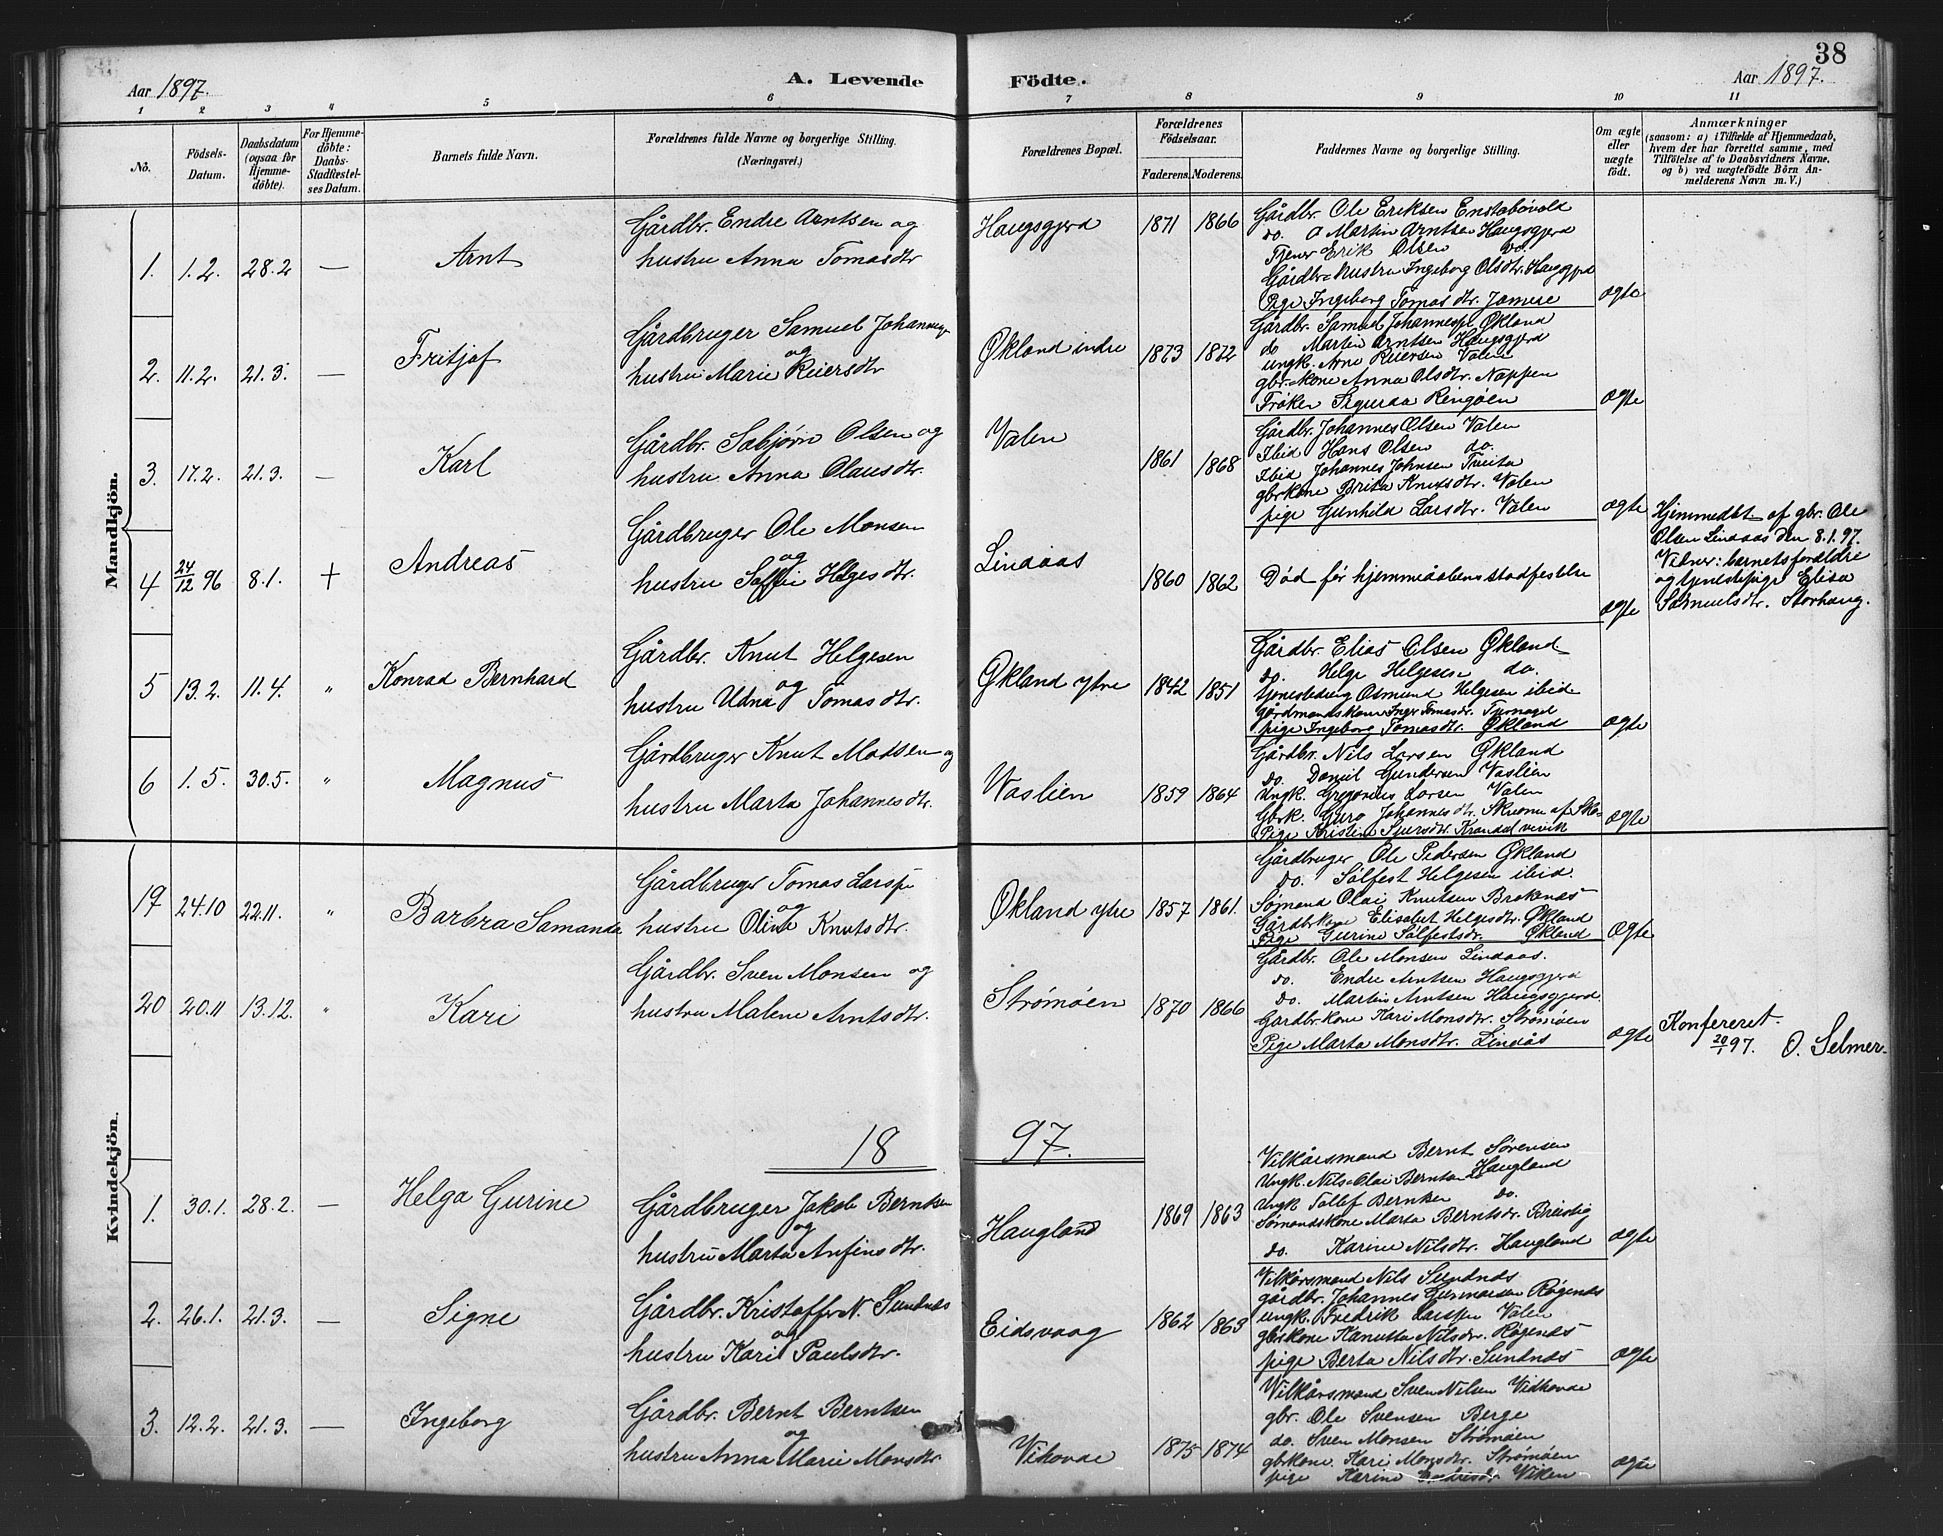 38
Aar 1897.
A. Levende Födte.
Aar 1897.
1 2 3 4 5 6 7 8 9 10 11
No.
Födsels-Datum.
Daabsdatum (ogsaa for Hjemmedöbte).
For Hjemmedöbte: Daabs-Stadfæstelses Datum.
Barnets fulde Navn.
Forældrenes fulde Navne og borgerlige Stilling. (Næringsvei.)
Forældrenes Bopæl.
Forældrenes Födselsaar.
Faderens. Moderens.
Faddernes Navne og borgerlige Stilling.
Om ægte eller uægte födt.
Anmærkninger
(saasom: a) i Tilfælde af Hjemmedaab, hvem der har forrettet samme, med Tilföielse af to Daabsvidners Navne, og b) ved uægtefödte Börn Anmelderens Navn m. V.)
Mandkjön.
1. 1.2. 28.2 — Arnt
Gårdbr. Endre Arntsen og
hustru Anna Tomasdtr
Haugsgjerd 1871 1866
Gårdbr. Ole Eriksen Enstabövold
do. Martin Arntsen Haugsgjerd
Tjener Erik Olsen do.
Gårdbr.hustru Ingeborg Olsdtr. Haugsgjerd
Pige Ingeborg Tomasdtr.
ægte
2. 11.2. 21.3. — Fritjof
Gårdbruger Samuel Johannesp
og
hustru Marie Reiersdtr
Økland indre 1873 1872
Gårdbr. Samuel Johannesp Økland
do Martin Arntsen Haugsgjerd
ungk. Arne Reiersen Valen
gbr.kone Anna Olsdtr. Nappen
Frøken Sigurda Ringøen
ægte
3. 17.2. 21.3. — Karl
Gårdbr. Sæbjørn Olsen og
hustru Anna Olausdtr.
Valen 1861 1868
Gårdbr. Johannes Olsen Valen
Ibid Hans Olsen do.
Ibid Johannes Johnsen Tveita
gbrkone Brita Knutsdtr. Valen
pige Gunhilda Larsdtr. Valen
ægte
4 24/12 96 8.1. + Andreas
Gårdbruger Ole Monsen
og
hustru Soffie Helgesdtr.
Lindaas 1860 1862
Død før hjemmedaabens stadfestelse
ægte
Hjemmedøbt af gbr. Ole
Olsen Lindaas den 8.1.97.
Vidner: barnets forældre
og tjenestepige Elisa
Samuelsdtr. Storhaug.
5 13.2. 11.4. " Konrad Bernhard
Gårdbr. Knut Helgesen
og
hustru Udna Tomasdtr.
Økland ytre 1842 1851
Gårdbr. Elias Olsen Økland
do. Helge Helgesen do.
tjenestedreng Osmund Helgesen ibid
gårdmandskone Inger Tomasdtr.
pige Ingeborg Tomasdtr. Økland
ægte
6 1.5. 30.5. " Magnus
Gårdbruger Knut Madsen og
hustru Marta Johannesdtr.
Vaslien 1859 1864
Gårdbr. Nils Larsen Økland
do. Daniel Gundersen Vaslien
Ungk. Gregorius Larsen Valen
Gbrk. Guro Johannesdtr.
Pige Kristine Sjursdtr.
ægte
Kvindekjön.
19 24.10 22.11. " Barbra Samanda
Gårdbruger Tomas Larsp
og
hustru Oline Knutsdtr.
Økland ytre 1857 1861.
Gårdbruger Ole Pedersen Økland
do. Sølfest Helgesen ibid.
Sømand Olai Knutsen Brekenes
Gårdbr.kone Elisabet Helgesdtr. Økland
Pige Gurine Sølfestsdr. Økland
ægte
20 20.11 13.12. " Kari
Gårdbr. Sven Monsen og
hustru Malene Arntsdtr.
Strømøen 1870 1866
Gårdbr. Ole Monsen Lindaas.
do. Endre Arntsen Haugsgjerd
do. Martin Arntsen Haugsgjerd.
Gardbr.kone Kari Monsdtr. Strømøen
Pige Marta Monsdtr. Lindås
ægte
Konfereret.
20/1 97. O. Selmer.
18 97.
1. 30.1. 28.2. — Helga Gurine
Gårdbruger Jakob Berntsen
og
hustru Marta Anfinsdtr.
Haugland 1869 1863
Vilkårsmand Bernt Sørensen
Haugland
Ungk. Nils Olai Berntsen
Ungk Tollef Berntsen do.
Sømandskone Marta Berntsdr. Breivig
do. Karine Nilsdtr. Haugland
ægte
2. 26.1. 21.3. — Signe
Gårdbr. Kristoffer N. Sundnæs
og
hustru Kari Paulsdtr.
Eidsvaag 1862 1863
Vilkårsmand Nils Sundnæs
gårdbr. Johannes Gunnarsen Røgenes
ungk. Fredrik Larsen Valen
gbrkone Kanutta Nilsdr. Røgenæs
pige Berta Nilsdtr. Sundnæs
ægte
3. 12.2. 21.3. — Ingeborg
Gårdbr. Bernt Berntsen
og
hustru Anna Marie Monsdtr
Vihovde 1875 1874
Vilkårsmand Sven Nilsen Vidhovde
gbr. Ole Svensen Berge
do. Sven Monsen Strømøen
gbrkone. Kari Monsdtr. Strømøen
pige Karine Endresdr. Viken
ægte